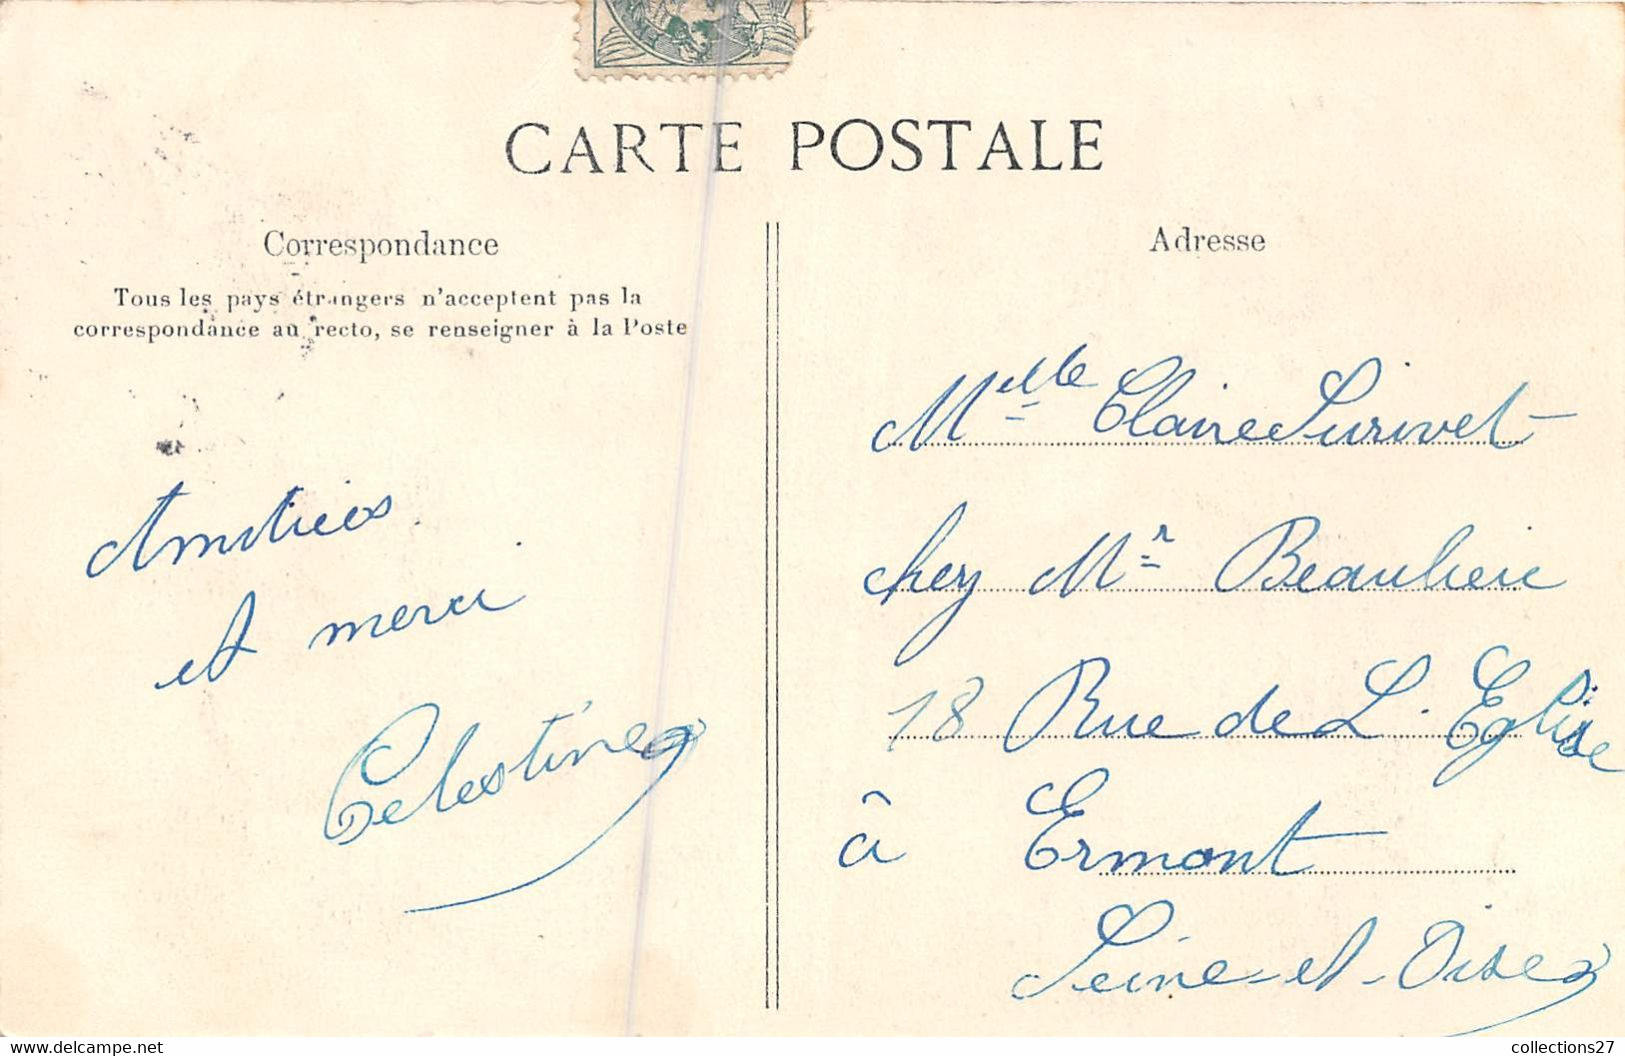 CARTE POSTALE
Correspondance
Tous les pays étrangers n'acceptent pas la
correspondance au recto, se renseigner à la Poste
Amitiés
et merci
Célestine
Adresse
Melle Claire Surivet
chez Mr Beaulieu
18 Rue de L'Eglise
à Ermont
Seine-et-Oise
collections27